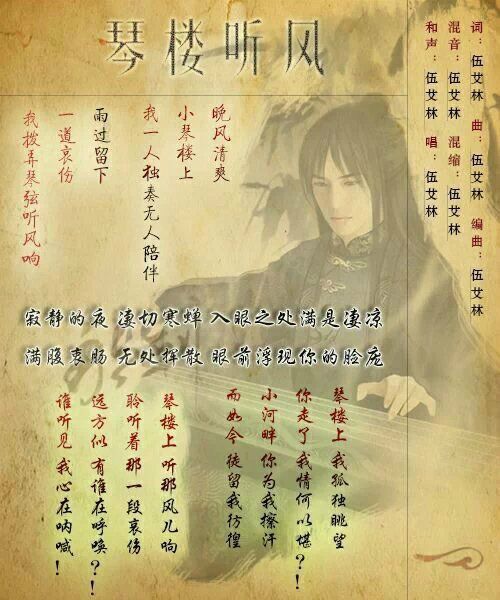 琴楼听风
词：伍艾林 曲：伍艾林 编曲：伍艾林
混音：伍艾林 混缩：伍艾林
和声：伍艾林 唱：伍艾林
晚风清爽
小琴楼上
我一人独奏无人陪伴
雨过留下
一道哀伤
我拨弄琴弦听风响
寂静的夜 凄切寒蝉 入眼之处满是凄凉
满腹衷肠 无处挥散 眼前浮现你的脸庞
琴楼上我孤独眺望
你走了我情何以堪？！
小河畔你为我擦汗
而如今徒留我彷徨
琴楼上听那风儿响
聆听着那一段哀伤
远方似有谁在呼唤？！
谁听见我心在呐喊！